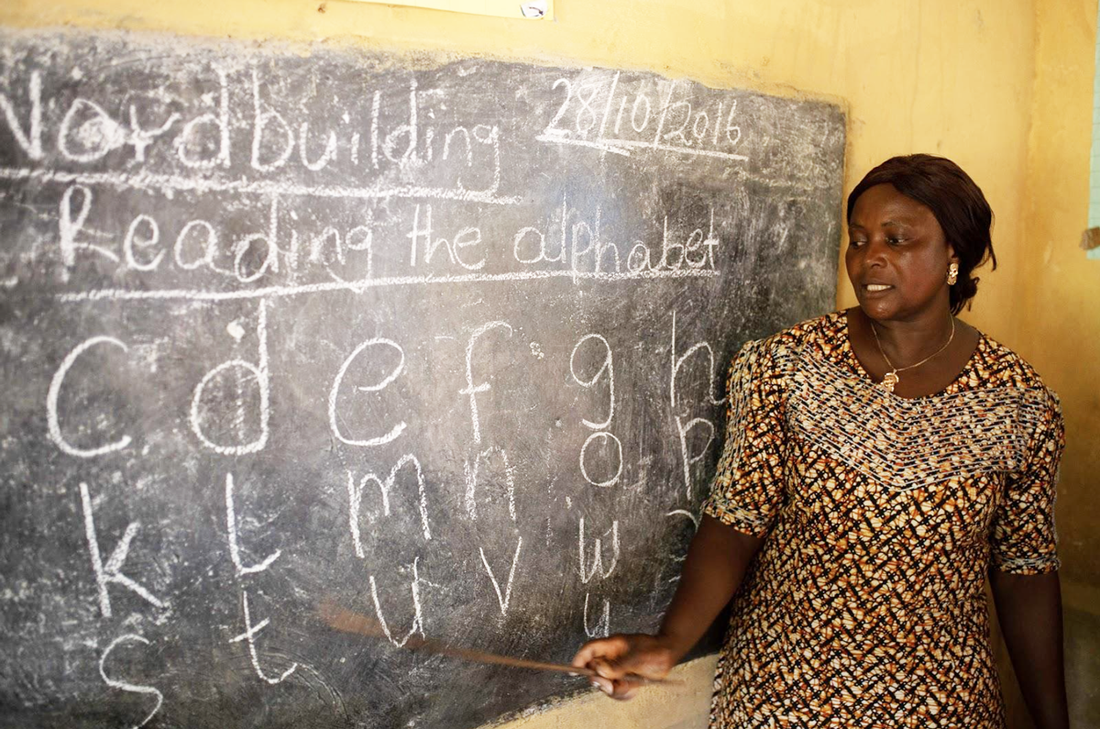 Wordbuilding 28/10/2016
Reading the alphabet
c d e f g h
k l m n o p
s t u v w
y